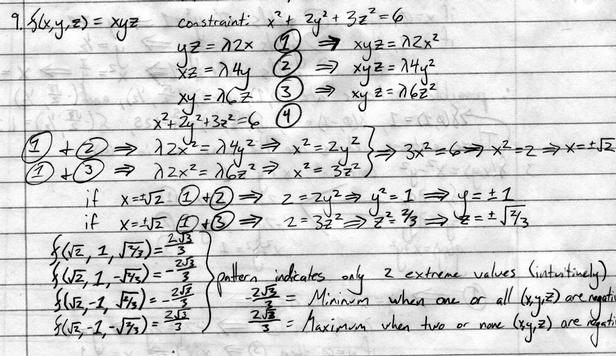 9. f(x,y,z) = xyz constraint: x² + 2y² + 3z² = 6
yz = λ2x ① ⇒ xyz = λ2x²
xz = λ4y ② ⇒ xyz = λ4y²
xy = λ6z ③ ⇒ xyz = λ6z²
x² + 2y² + 3z² = 6 ④
① + ② ⇒ λ2x² = λ4y² ⇒ x² = 2y² } ⇒ 3x² = 6 ⇒ x² = 2 ⇒ x = ±√2
① + ③ ⇒ λ2x² = λ6z² ⇒ x² = 3z²
if x = ±√2 ① + ② ⇒ 2 = 2y² ⇒ y² = 1 ⇒ y = ±1
if x = ±√2 ① + ③ ⇒ 2 = 3z² ⇒ z² = 2/3 ⇒ z = ±√2/3
f(√2, 1, √2/3) = 2√3/3
f(√2, 1, -√2/3) = -2√3/3 } pattern indicates only 2 extreme values (intuitively)
f(√2, -1, √2/3) = -2√3/3 -2√3/3 = Minimum when one or all (x,y,z) are negati
f(√2, -1, -√2/3) = 2√3/3 2√3/3 = Maximum when two or none (x,y,z) are negati